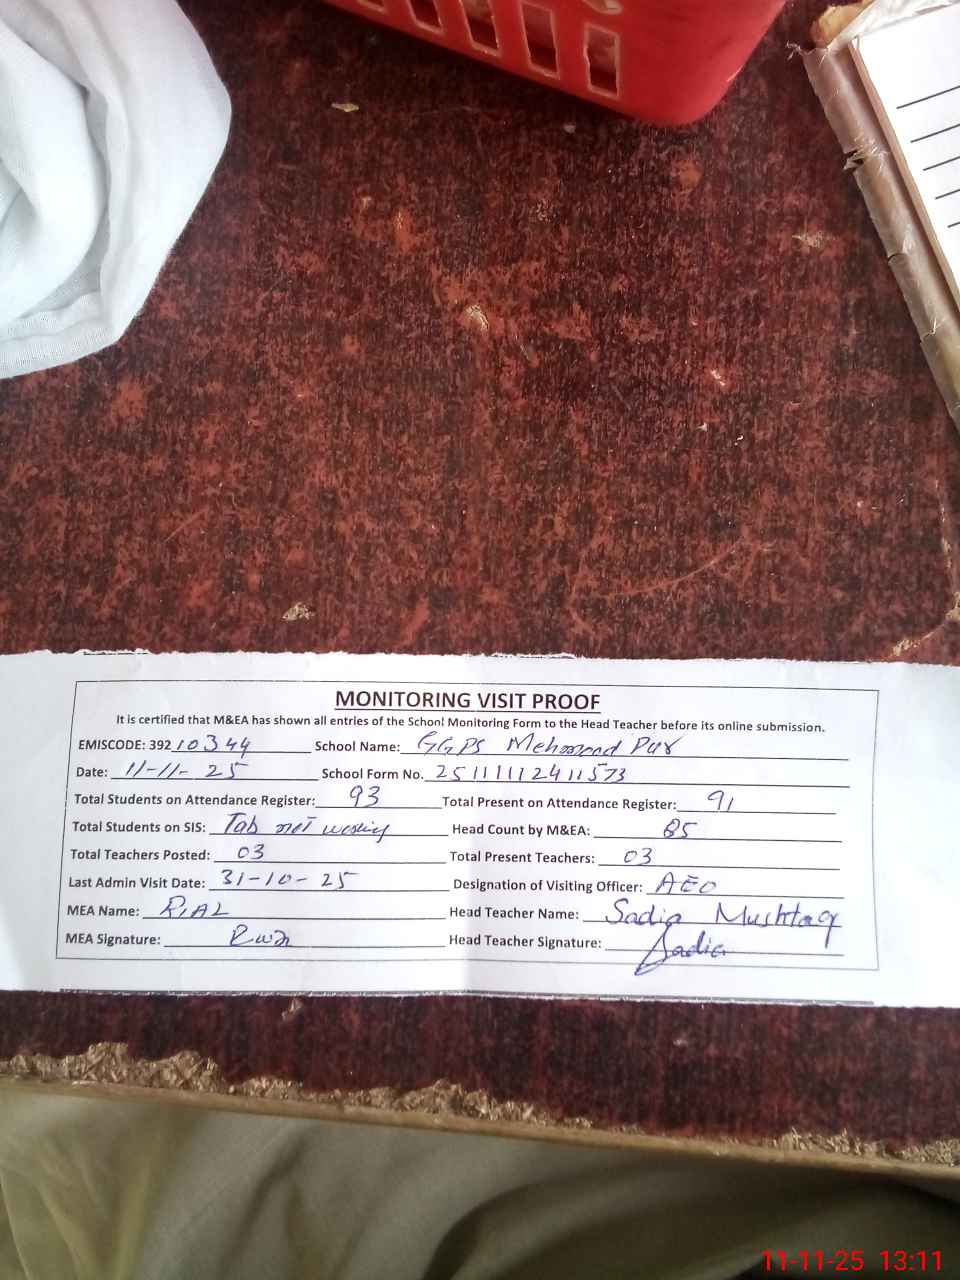 MONITORING VISIT PROOF
It is certified that M&EA has shown all entries of the School Monitoring Form to the Head Teacher before its online submission.
EMISCODE: 39210344 School Name: GGPS Mehmood Pur
Date: 11-11-25 School Form No. 25111112411573
Total Students on Attendance Register: 93 Total Present on Attendance Register: 91
Total Students on SIS: Tab not working Head Count by M&EA: 85
Total Teachers Posted: 03 Total Present Teachers: 03
Last Admin Visit Date: 31-10-25 Designation of Visiting Officer: AEO
MEA Name: Head Teacher Name: Sadia Mushtaq
MEA Signature: Head Teacher Signature: Sadia
11-11-25 13:11